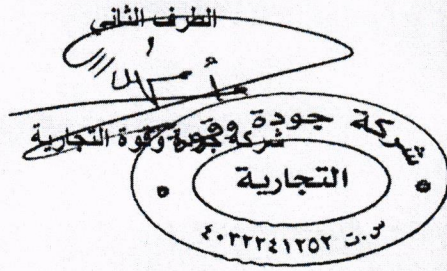 الطرف الثاني
شركة جودة وقوة التجارية
شركة جودة وقوة
التجارية
س.ت ٤٠٣٢٢٤١٢٥٢